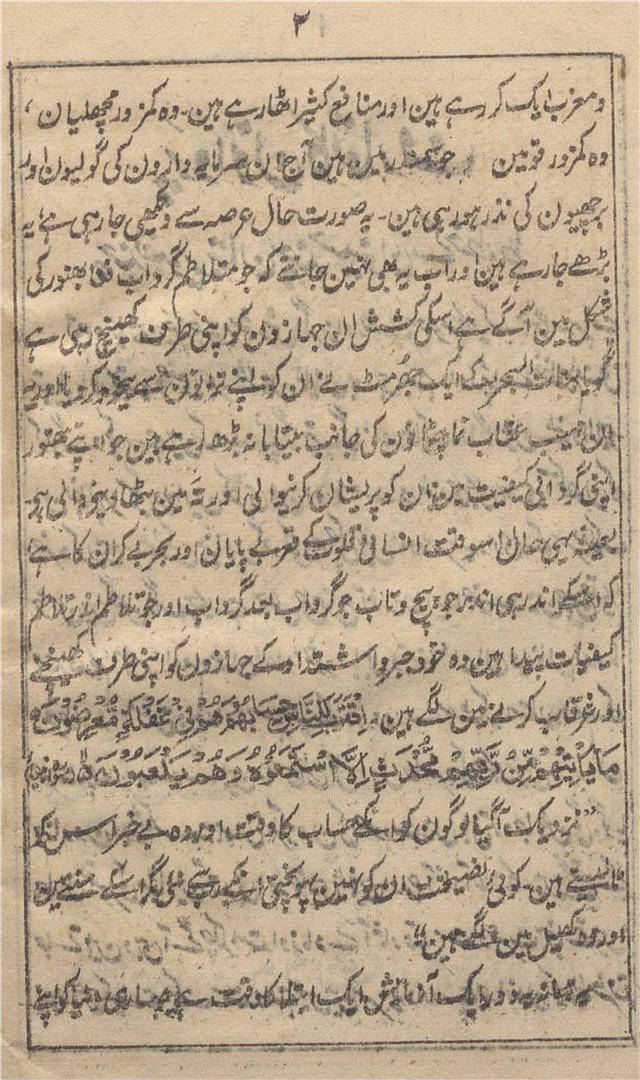 ۲
ومغرب ایک کر رہے ہین اور منافع کثیر اٹھا رہے ہین۔ وہ کمزور مچھلیان،
وہ کمزور قومین جو سمندر مین ہین آج ان سرمایہ دارون کی گولیون اور
برچھیون کی نذر ہو رہی ہین۔ یہ صورت حال عرصہ سے دیکھی جا رہی ہے یہ
بڑھے جا رہے ہین اور اب یہ بھی نہین جانتے کہ جو متلاطم گرداب بھنور کی
شکل مین آگے ہے اسکی کشش ان جہازون کو اپنی طرف کھینچ رہی ہے
گویا بنات البحر کے ایک جھرمٹ نے ان کو اپنے سے بیخود کر دیا اور یہ
عقاب نما چٹانون کی جانب بیتابانہ بڑھ رہے ہین جو اپنے بھنور
اپنی گردابی کیفیت مین ان کو پریشان کرنیوالی اور تہ مین بٹھا دینے والی ہو
بعینہ یہی حال اسوقت انسانی قلوب کے قعر بے پایان اور بحر بے کران کا ہے
کہ اسکے اندر ہی اندر جو پیچ و تاب جو گرداب بعد گرداب اور جو تلاطم اور تلاطم
کیفیات پیدا ہین وہ خود جبر و استبداد کے جہازون کو اپنی طرف کھینچنے
اور غرقاب کرنے مین لگے ہین۔ اِقْتَرَبَ لِلنَّاسِ حِسَابُهُمْ وَهُمْ فِیْ غَفْلَةٍ مُّعْرِضُوْنَ
مَا یَاْتِیْهِمْ مِّنْ ذِكْرٍ مِّنْ رَّبِّهِمْ مُّحْدَثٍ اِلَّا اسْتَمَعُوْهُ وَهُمْ یَلْعَبُوْنَ
"نزدیک آ گیا لوگون کو انکے حساب کا وقت اور وہ بے خبر اس کو
ٹالتے ہین۔ کوئی نصیحت ان کو نہین پہونچتی انکے رب سے نئی مگر اسے سنتے ہین
اور وہ کھیل مین لگے ہین"
یہ زمانہ یہ دور ایک آزمائش ایک ابتلا کا وقت ہے جو ہماری دنیا کو اپنے